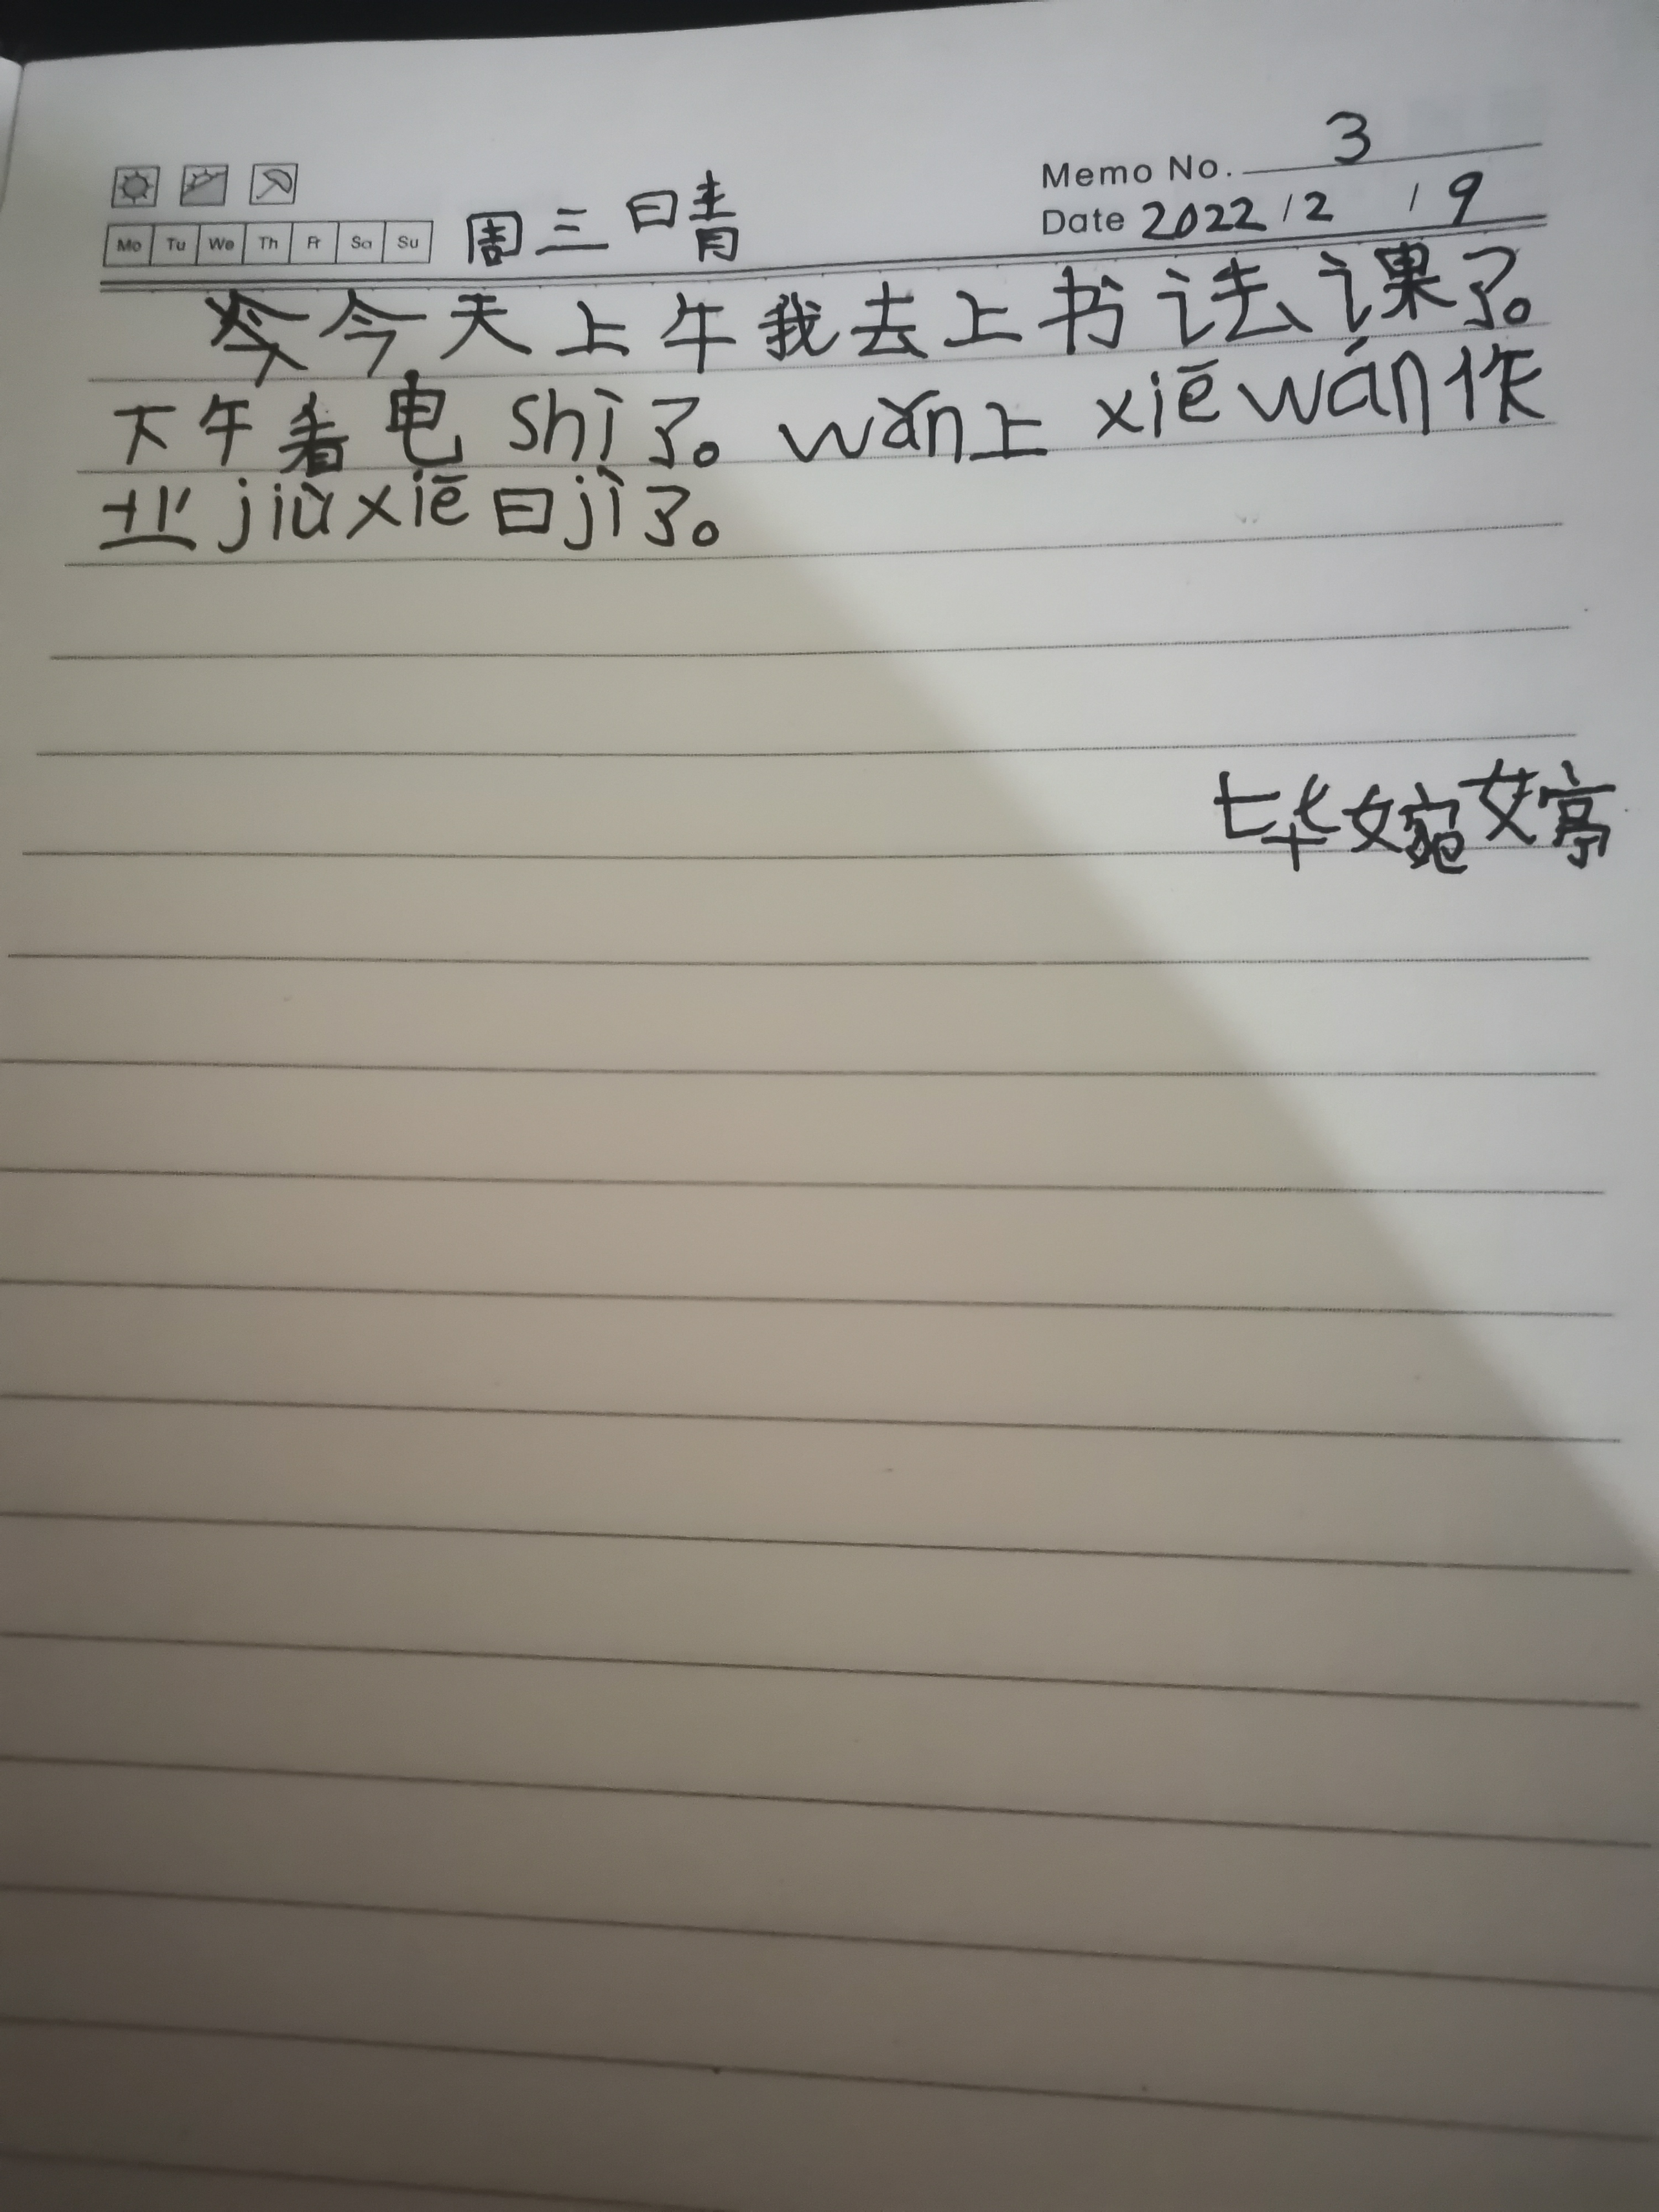 Memo No. 3
Mo Tu We Th Fr Sa Su 周三晴 Date 2022/2/9
今天上午我去上书法课了。
下午看电shì了。wǎn上xiēwán作
业jiùxiē日jì了。
毕婉婷